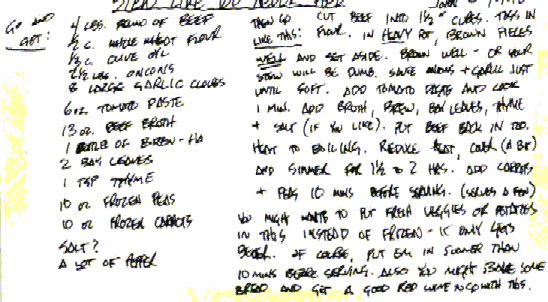 GO AND GET:
4 LBS. ROUND OF BEEF
1/2 C. WHOLE WHEAT FLOUR
1/3 C. OLIVE OIL
2 1/2 LBS. ONIONS
8 LARGE GARLIC CLOVES
6 OZ. TOMATO PASTE
13 OZ. BEEF BROTH
1 BOTTLE OF BREW - HA
2 BAY LEAVES
1 TSP THYME
10 OZ FROZEN PEAS
10 OZ FROZEN CARROTS
SALT?
A LOT OF PEPPER
THEN GO LIKE THIS:
CUT BEEF INTO 1 1/2" CUBES. TOSS IN
FLOUR. IN HEAVY POT, BROWN PIECES
WELL AND SET ASIDE. BROWN WELL - OR YOUR
STEW WILL BE DUMB. SAUTE ONIONS + GARLIC JUST
UNTIL SOFT. ADD TOMATO PASTE AND COOK
1 MIN. ADD BROTH, BREW, BAY LEAVES, THYME
+ SALT (IF YOU LIKE). PUT BEEF BACK IN TOO.
HEAT TO BOILING. REDUCE HEAT, COVER (A BIT)
AND SIMMER FOR 1 1/2 TO 2 HRS. ADD CARROTS
+ PEAS 10 MINS BEFORE SERVING. (SERVES A FEW)
YOU MIGHT WANT TO PUT FRESH VEGGIES OR POTATOES
IN THIS INSTEAD OF FROZEN - IT ONLY GETS
BETTER. OF COURSE, PUT EM IN SOONER THAN
10 MINS BEFORE SERVING. ALSO YOU MIGHT SOME
BREAD AND GET A GOOD RED WINE TO GO WITH THIS.